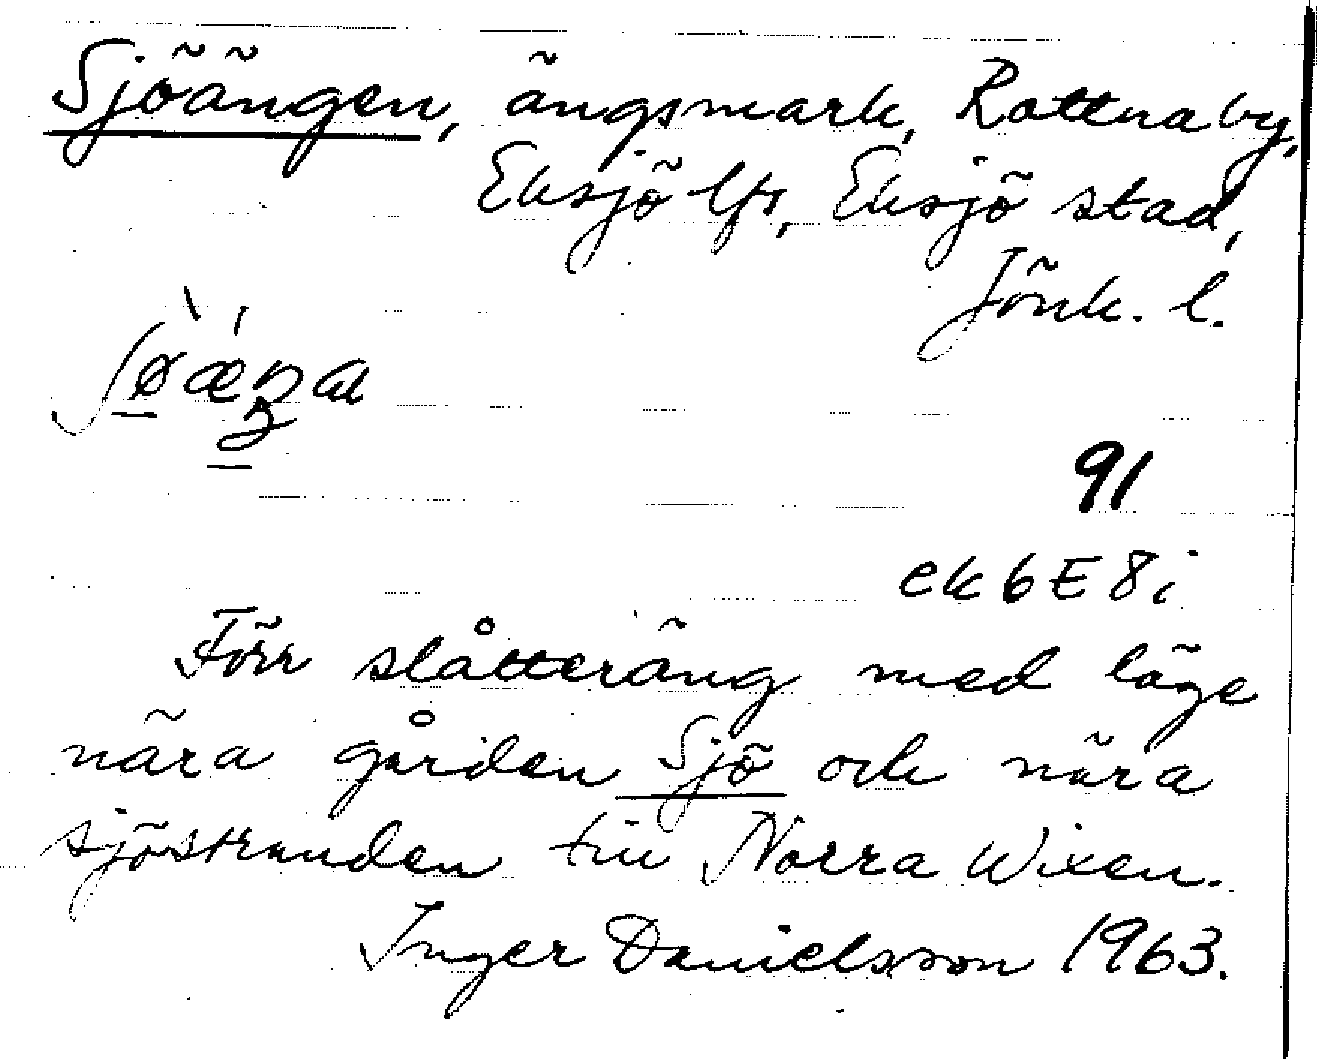 Sjöängen, ängsmark, Rattnaby,
Eksjö lfs, Eksjö stad,
Jönk. l.
91
ek 6 E 8 i
Förr slåtteräng med läge
nära gården Sjö och nära
sjöstranden till Norra Wixen.
Inger Danielsson 1963.